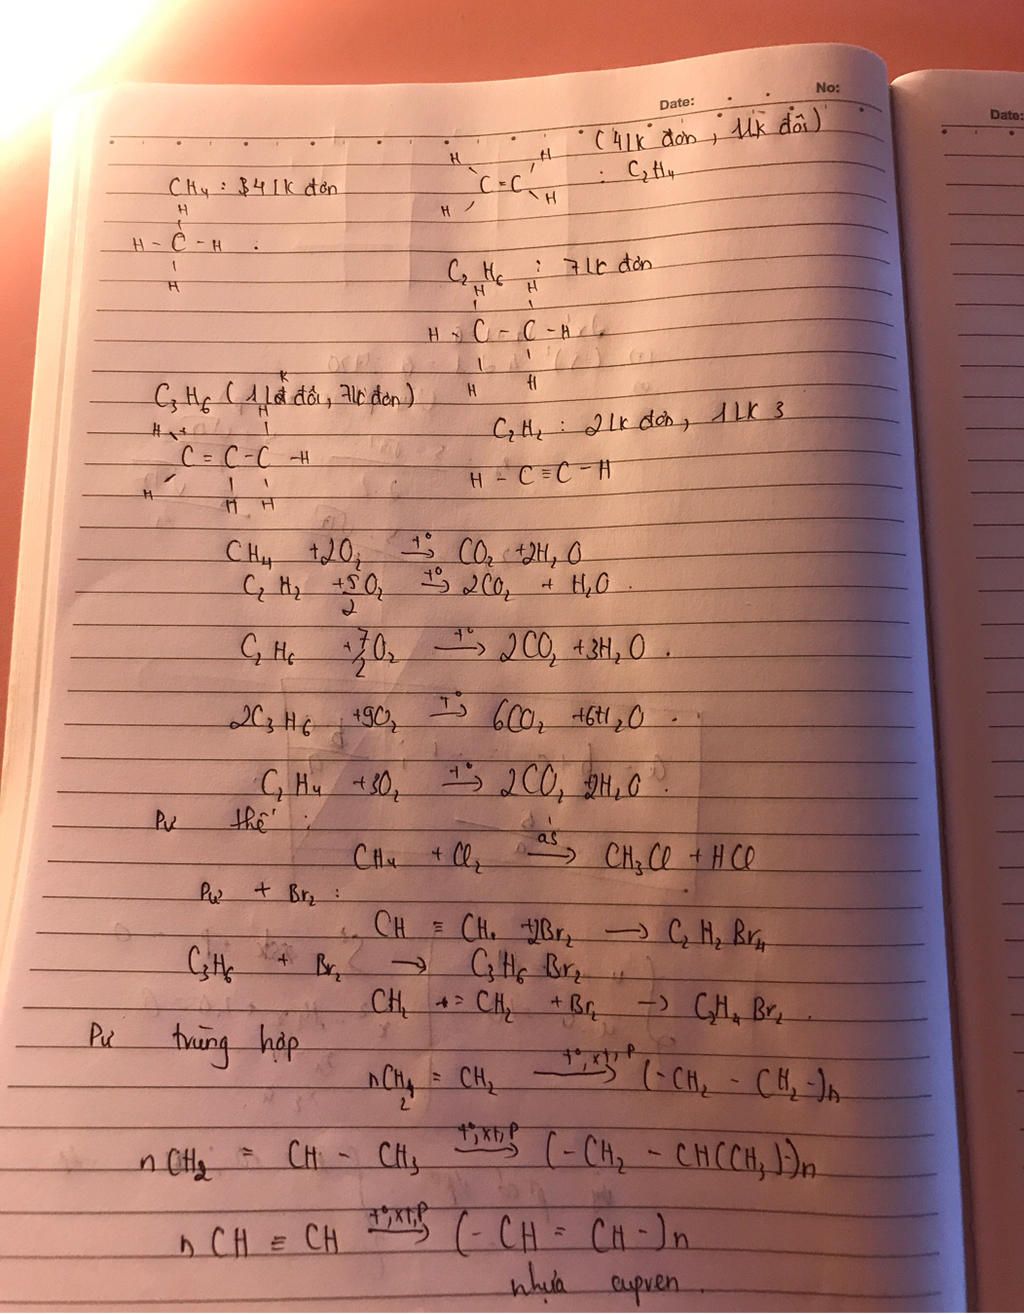 No:
Date:
Date:
(4lk đơn, 1lk đôi)
CH₄ : 4 lk đơn
H
H - C - H
H
H H
C = C : C₂H₄
H H
C₂H₆ : 7lk đơn
H H
H - C - C - H
H H
C₃H₆ (1lk đôi, 7lk đơn)
H H
C = C - C - H
H H H
C₂H₂ : 2lk đơn, 1lk 3
H - C ≡ C - H
CH₄ + 2O₂ →(t°) CO₂ + 2H₂O
C₂H₂ + 5/2 O₂ →(t°) 2CO₂ + H₂O.
C₂H₆ + 7/2 O₂ →(t°) 2CO₂ + 3H₂O.
2C₃H₆ + 9O₂ →(t°) 6CO₂ + 6H₂O.
C₂H₄ + 3O₂ →(t°) 2CO₂ 2H₂O.
Pư thế :
CH₄ + Cl₂ →(ás) CH₃Cl + HCl
Pư + Br₂ :
CH ≡ CH + 2Br₂ → C₂H₂Br₄
C₃H₆ + Br₂ → C₃H₆Br₂
CH₂ = CH₂ + Br₂ → C₂H₄Br₂.
Pư trùng hợp
nCH₂ = CH₂ →(t°, xt, P) (-CH₂ - CH₂-)n
nCH₂ = CH - CH₃ →(t°, xt, P) (-CH₂ - CH(CH₃)-)n
nCH ≡ CH →(t°, xt, P) (-CH = CH-)n
nhựa cupren.